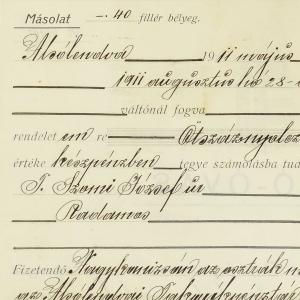 Másolat -. 40 fillér bélyeg.
Alsólendva 1911 május
1911 augusztus hó 28-
váltónál fogva
rendelet en re Ötszáznyolcz
értéke készpénzben tegye számolásba tud
T. Szomi József úr
Radamos
Fizetendő Nagykanizsán az osztrák m
az Alsólendvai Takarékpénztár